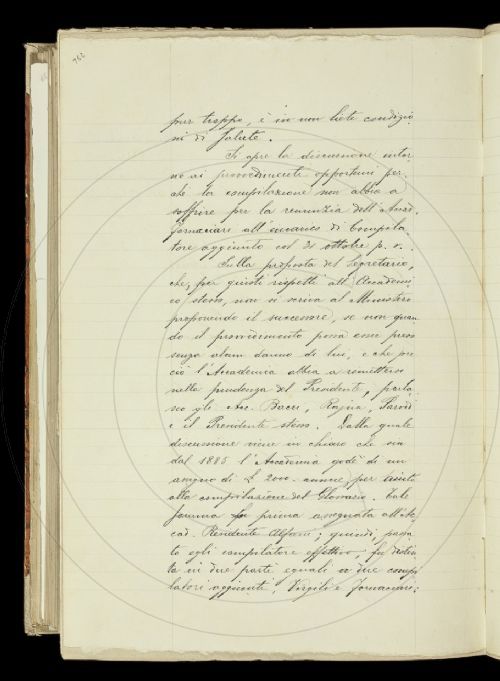 766
pur troppo, è in non liete condizio
ni di salute.
Si apre la discussione intor
no ai provvedimenti opportuni per
chè la compilazione non abbia a
soffrire per la renunzia dell'Accad.
Fornaciari all'incarico di Compila-
tore aggiunto col 31 ottobre p. v..
Sulla proposta del Segretario,
che, per giusti rispetti all'Accademi
co stesso, non si scriva al Ministero
proponendo il successore, se non quan
do il provvedimento possa esser preso
senza alcun danno di lui, e che per
ciò l'Accademia abbia a rimettersi
nella prudenza del Presidente, parla
no gli Acc. Bacci, Rajna, Parodi
e il Presidente stesso. Dalla quale
discussione viene in chiaro che sin
dal 1885 l'Accademia gode di un
assegno di £ 2000. annue, per
alla compilazione del Glossario. Tale
somma fu prima assegnata all'Ac
cad. Residente Alfani; quindi, passa
to egli compilatore effettivo, fu distin
ta in due parti eguali a due compi
latori aggiunti, Virgili e Fornaciari;